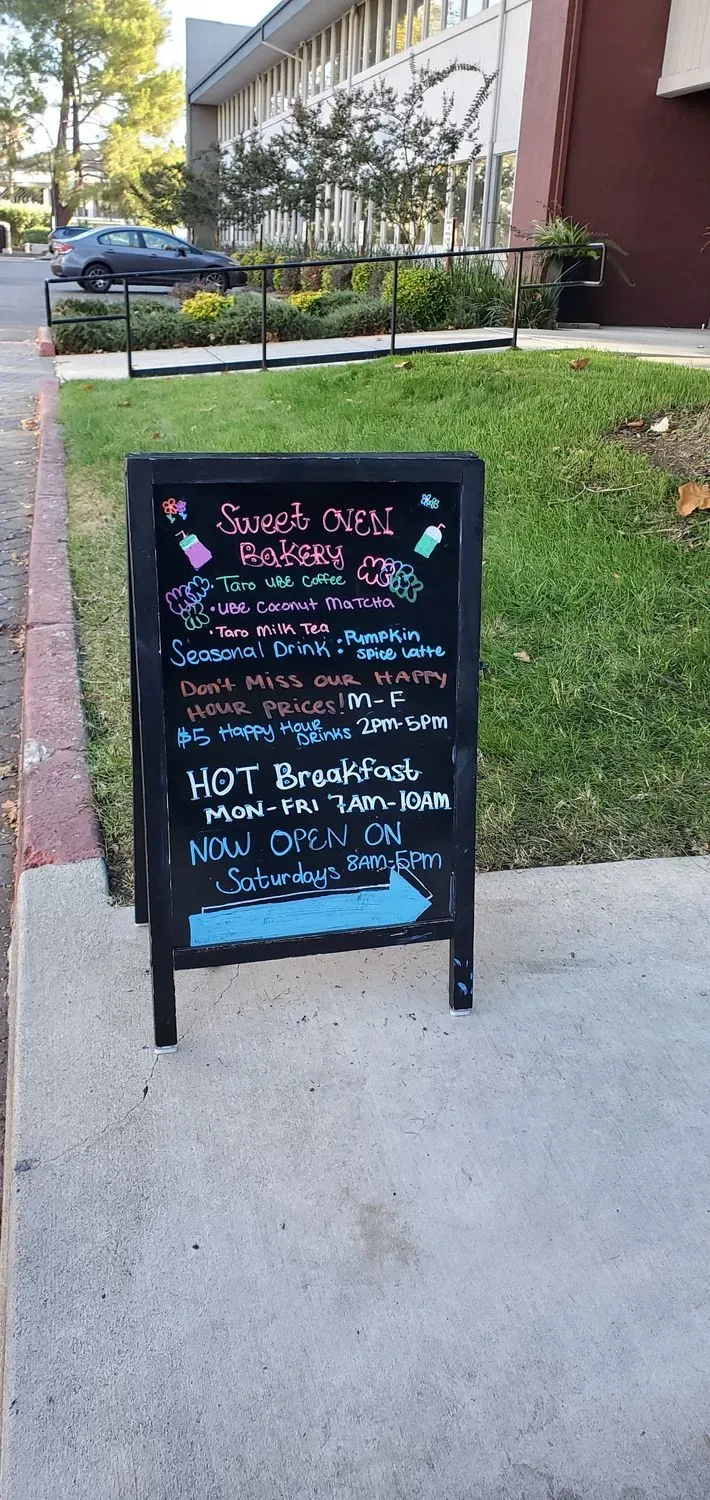 Sweet OVEN
BAKERY
Taro UBE Coffee
• UBE Coconut MaTCHa
• Taro Milk Tea
Seasonal Drink: Pumpkin
spice Latte
Don't Miss our Happy
Hour Prices! M-F
$5 Happy Hour Drinks 2PM-5PM
HOT Breakfast
MON-FRI 7AM-10AM
NOW OPEN ON
Saturdays 8AM-5PM